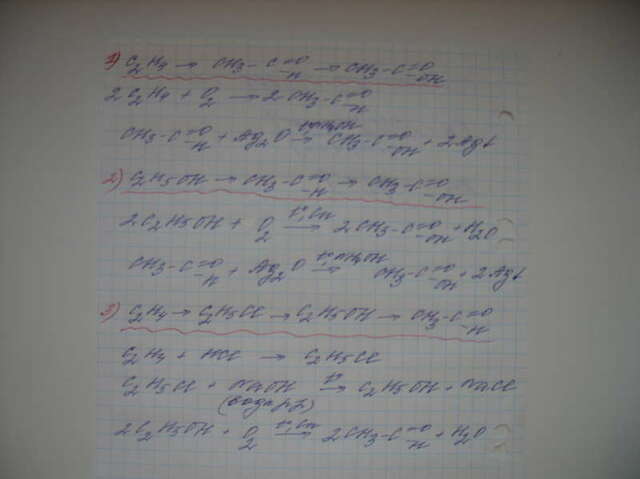 1) C₂H₄ → CH₃-C=O-H → CH₃-C=O-OH
2C₂H₄ + O₂ → 2CH₃-C=O-H
CH₃-C=O-H + Ag₂O → t°, NH₄OH CH₃-C=O-OH + 2Ag↓
2) C₂H₅OH → CH₃-C=O-H → CH₃-C=O-OH
2C₂H₅OH + O₂ → t°, Cu 2CH₃-C=O-OH + H₂O
CH₃-C=O-H + Ag₂O → t°, NH₄OH CH₃-C=O-OH + 2Ag↓
3) C₂H₄ → C₂H₅Cl → C₂H₅OH → CH₃-C=O-H
C₂H₄ + HCl → C₂H₅Cl
C₂H₅Cl + NaOH → t° C₂H₅OH + NaCl
(водн р-р)
2C₂H₅OH + O₂ → t°, Cu 2CH₃-C=O-H + H₂O